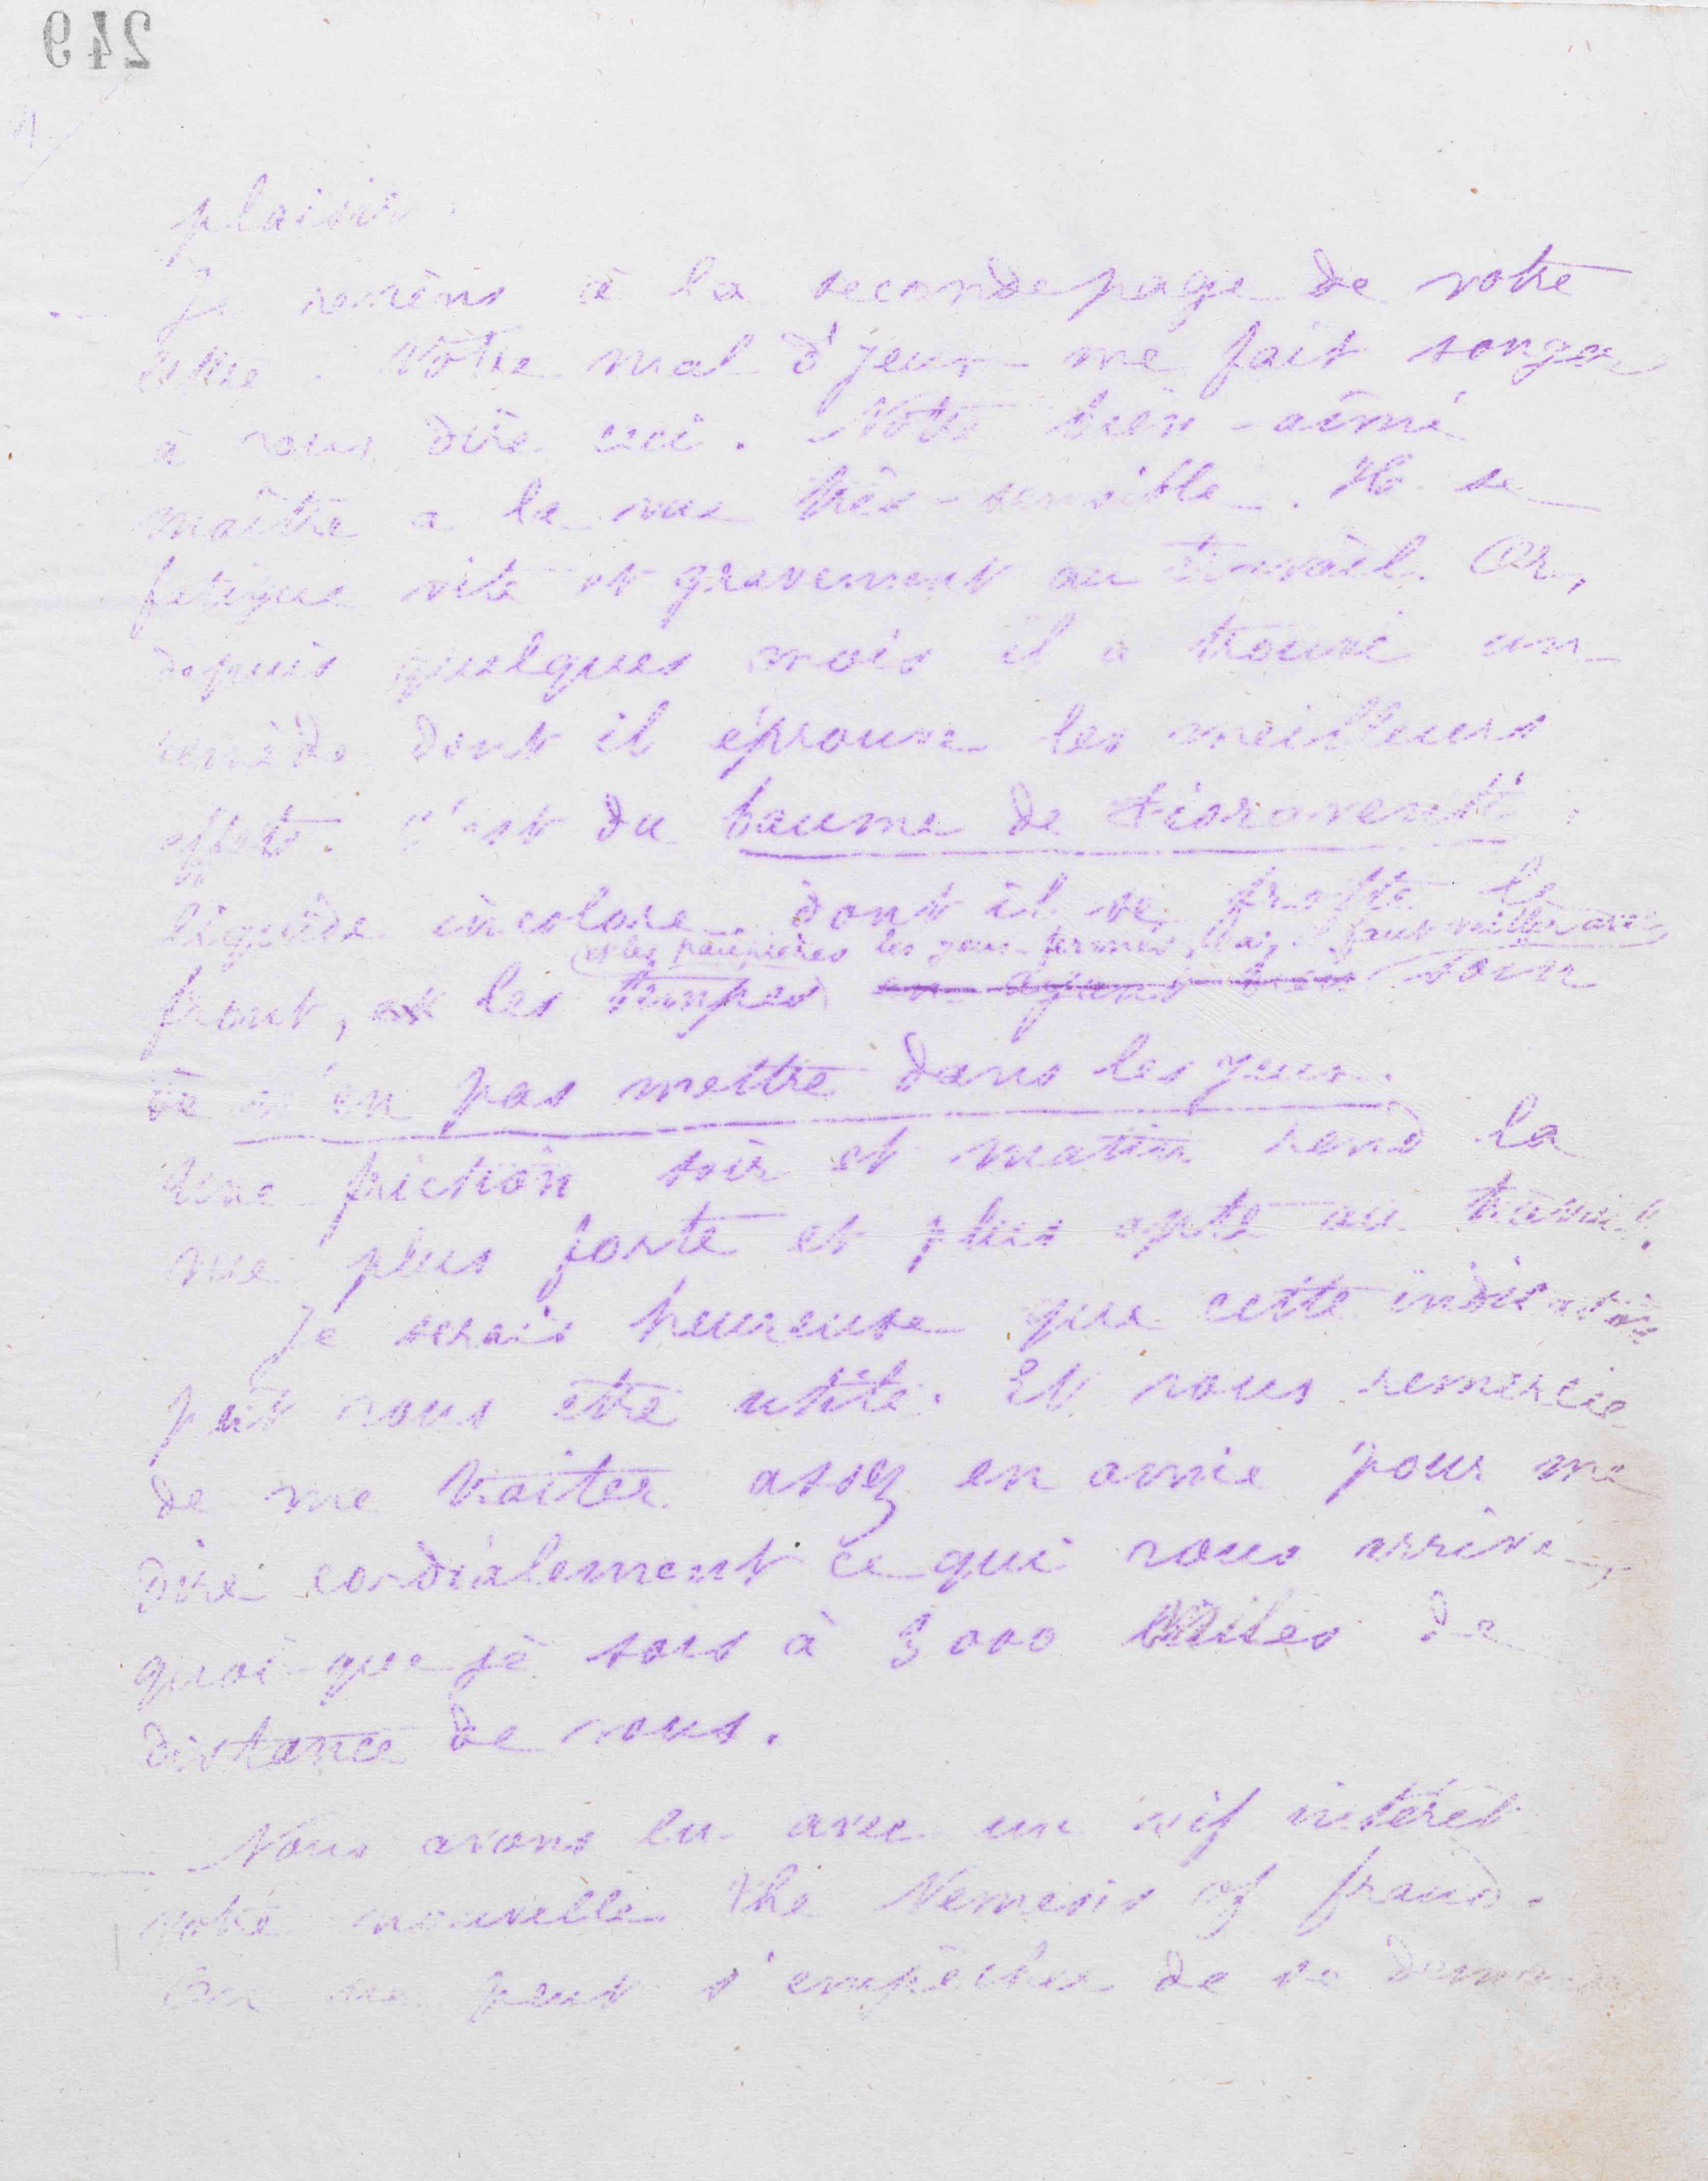 249
plaisir.
Je reviens à la seconde page de votre
lettre. Votre mal d'yeux me fait songer
à vous dire ceci. Notre bien-aimé
maître a la vue très-sensible. Il se
fatigue vite et gravement au travail. Or,
depuis quelques mois il a trouvé un
remède dont il éprouve les meilleurs
effets. C'est du baume de Fioraventi :
liquide incolore dont il se frotte le
(et les paupières les yeux fermés, Mais il faut veiller avec
front, et les tempes en ayant bien soin
de n'en pas mettre dans les yeux.
Une friction soir et matin rend la
vue plus forte et plus apte au travail.
Je serais heureuse que cette indication
pût vous être utile. Et vous remercie
de me traiter assez en amie pour me
dire cordialement ce qui vous arrive,
quoique je sois à 3000 Milles de
distance de vous.
Nous avons lu avec un vif intérêt
votre nouvelle The Nemesis of fraud.
On ne peut s'empêcher de se deman